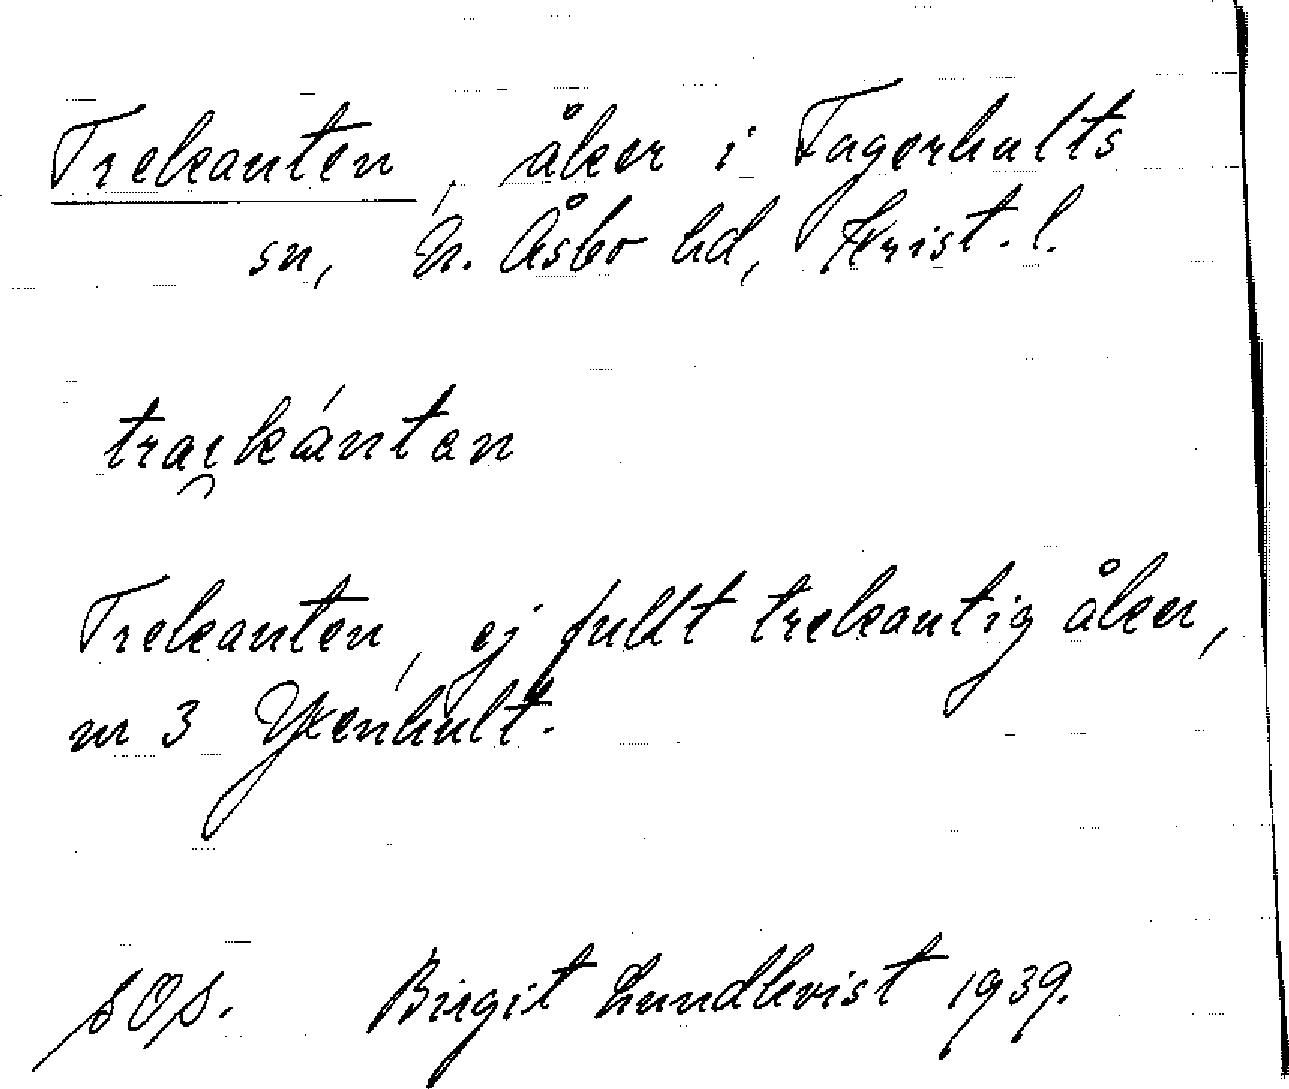 Trekanten, åker i Fagerhults
sn, N. Åsbo hd, Krist. l.
Trekanten, ej fullt trekantig åker,
nr 3 Yxenhult.
Birgit Lundkvist 1939.